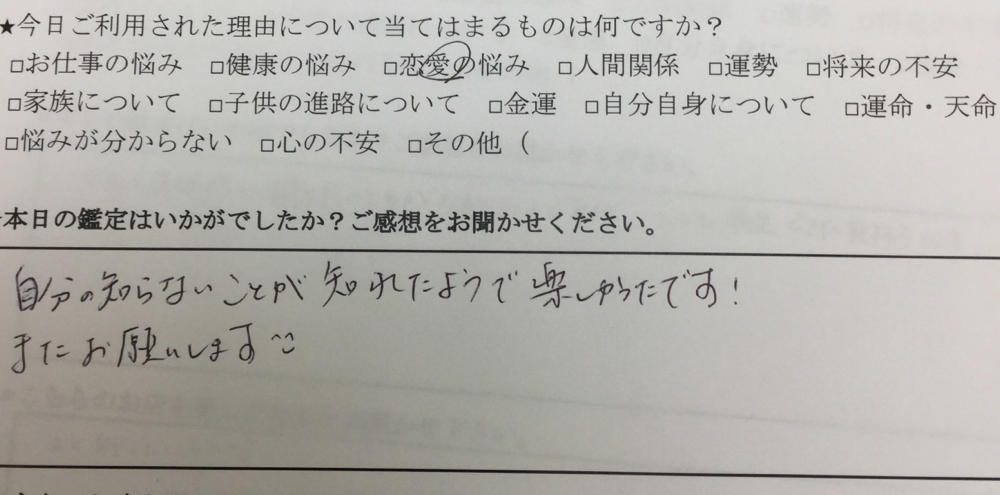 ★今日ご利用された理由について当てはまるものは何ですか？
□お仕事の悩み □健康の悩み □恋愛の悩み □人間関係 □運勢 □将来の不安
□家族について □子供の進路について □金運 □自分自身について □運命・天命
□悩みが分からない □心の不安 □その他（
本日の鑑定はいかがでしたか？ご感想をお聞かせください。
自分の知らないことが知れたようで楽しかったです！
またお願いします